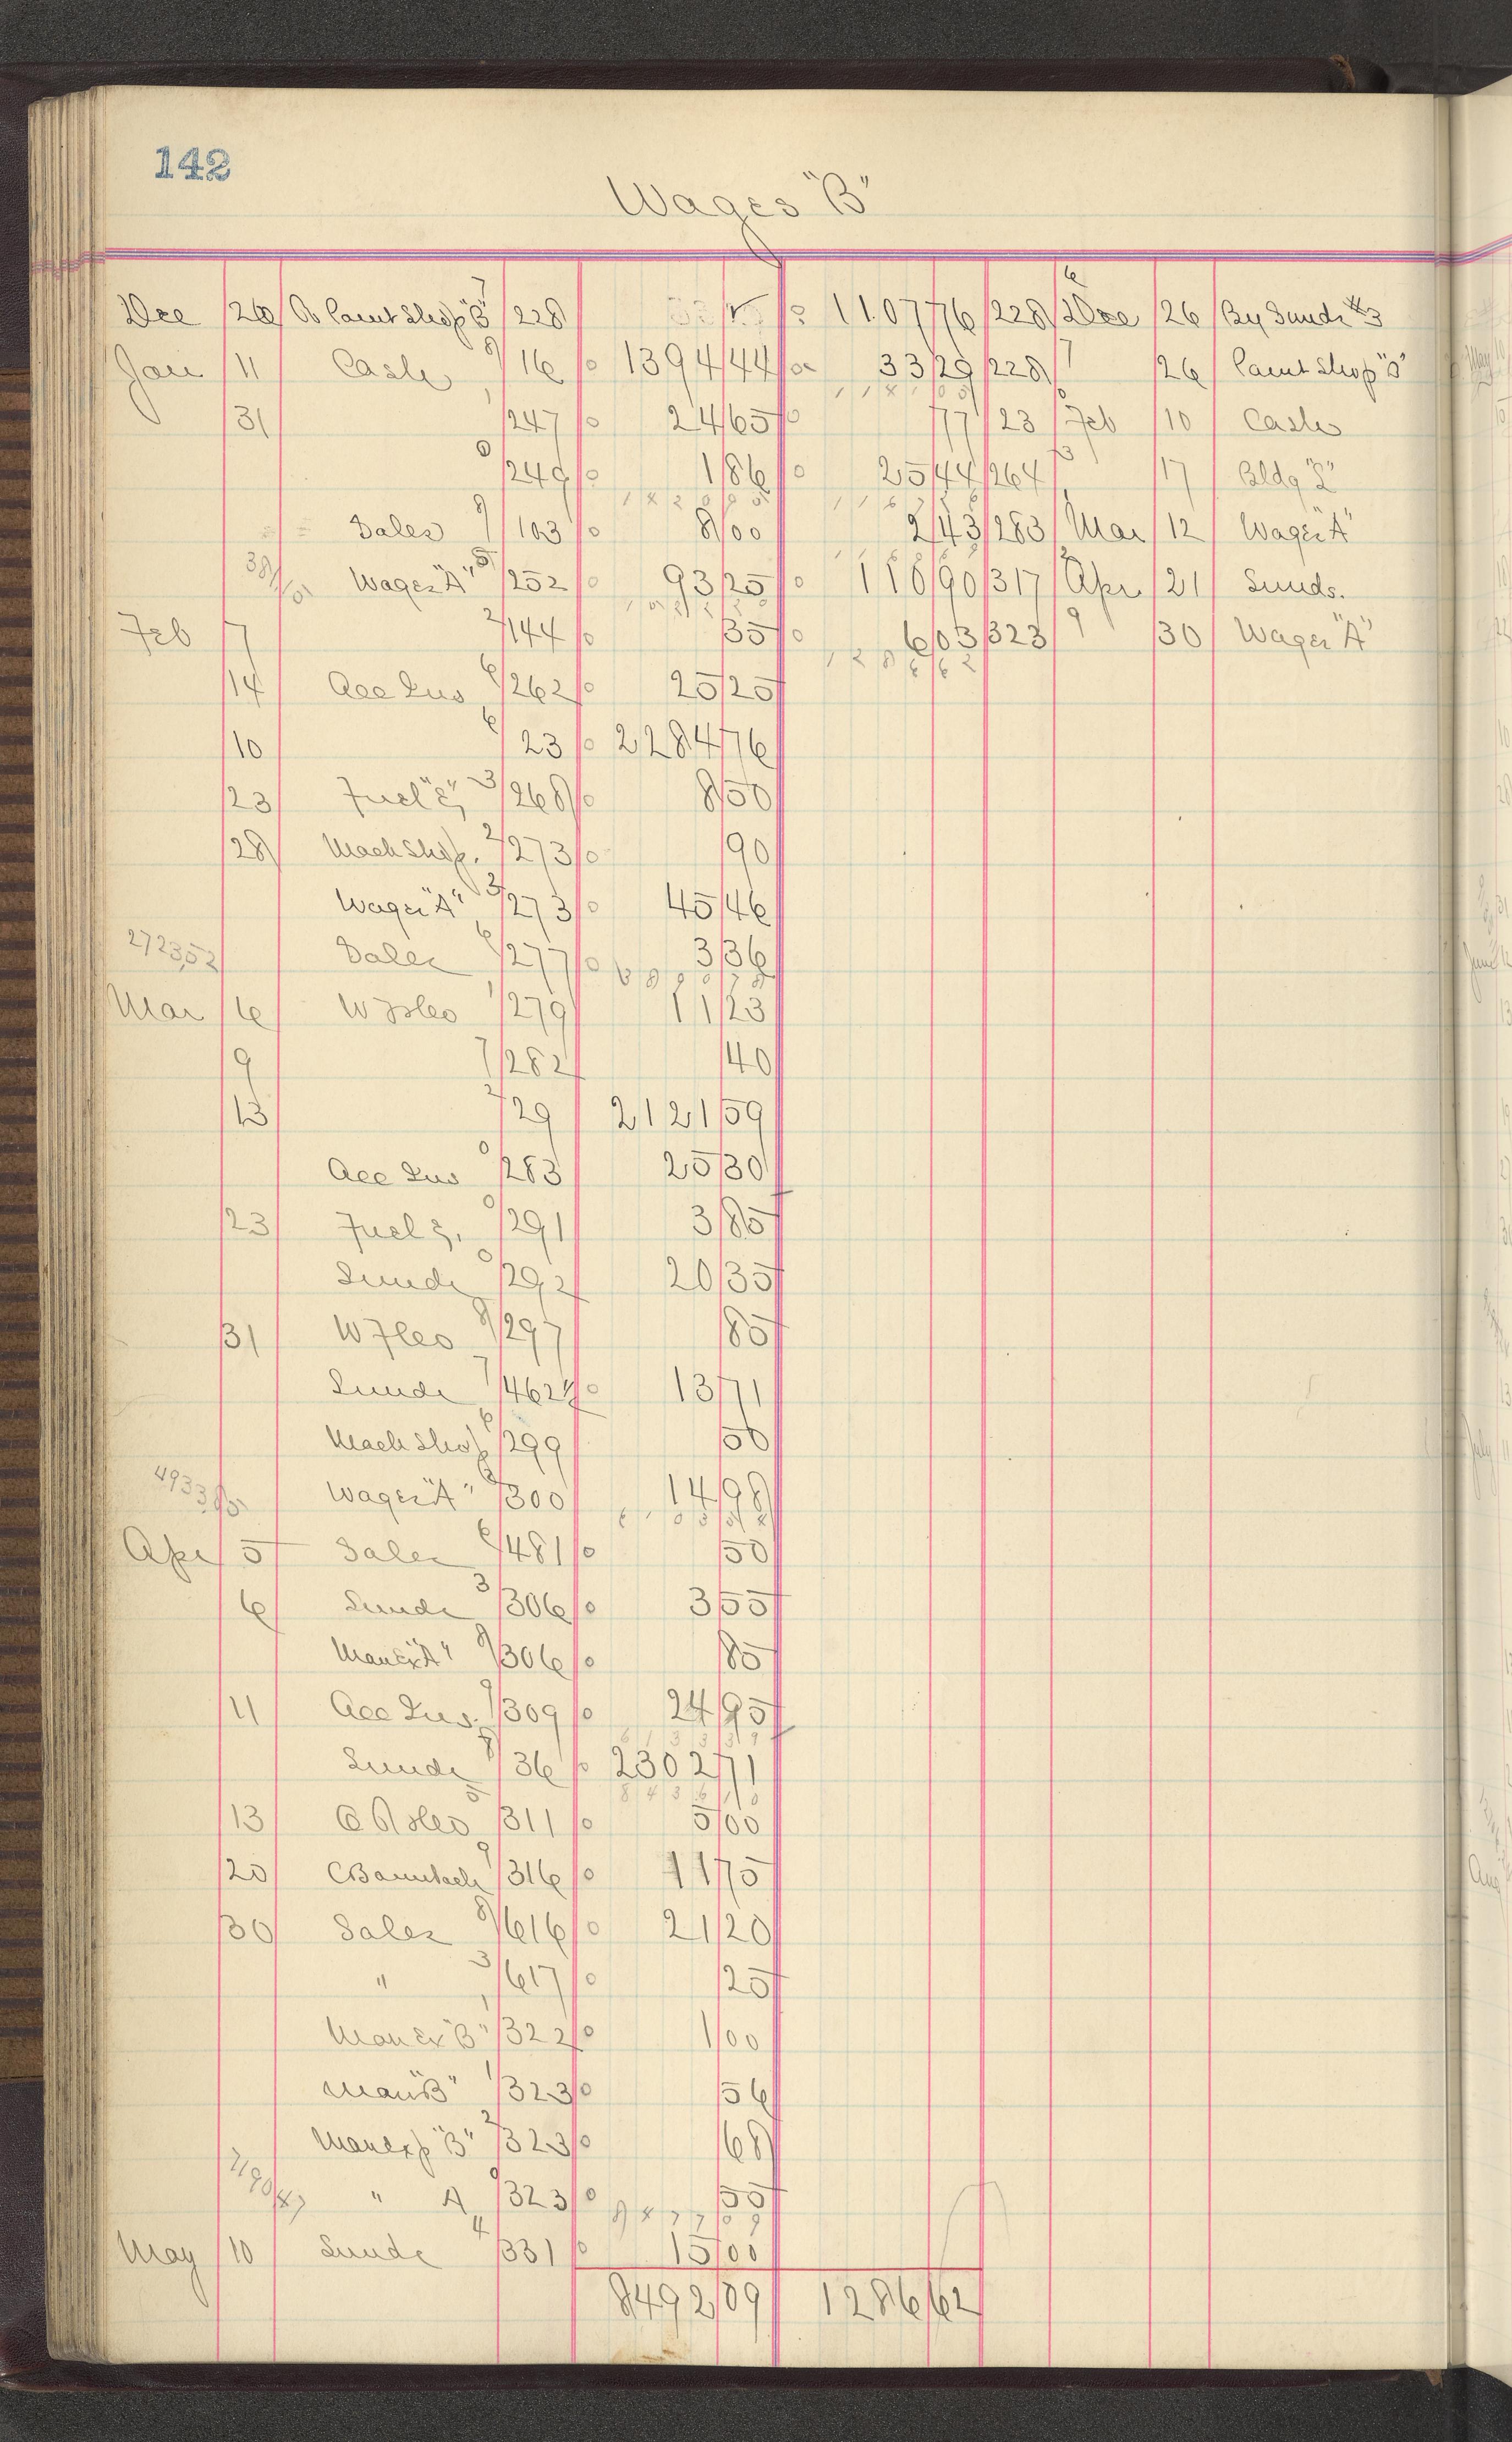 142
Wages "B"
Dec 26 Paint Shop "B" 228 1107 76 228 Dec 26 By Sunds #3
Jan 11 Cash 16 1394 44 33 29 228 26 Paint Shop "B"
31 247 24 65 77 23 Feb 10 Cash
249 1 86 25 44 264 17 Bldg
Sales 103 8 00 2 43 283 Mar 12 Wages "A"
Wages "A" 252 93 25 116 90 317 Apr 21 Sunds.
Feb 7 144 35 6 03 323 30 Wages "A"
14 Acc Ins 262 25 25
10 23 2284 76
23 Fuel 268 8 50
28 Mach Shop. 273 90
Wages "A" 273 45 46
272352 Sales 277 3 36
Mar 6 279 11 23
9 282 40
13 29 2121 59
Acc Ins 283 25 30
23 Fuel 291 3 85
Sunds 292 20 35
31 297 85
Sunds 462 13 71
Mach Shop 299 50
Wages "A" 300 14 98
Apr 5 Sales 481 50
6 Sunds 306 3 55
Man Ex "A" 306 85
11 Acc Ins. 309 24 95
Sunds 36 2302 71
13 311 5 00
20 316 11 75
30 Sales 616 21 20
" 617 25
Man Ex "B" 322 1 00
Man "B" 323 56
Man Exp "B" 323 68
" A 323 55
May 10 Sunds 331 15 00
8492 09 1286 62